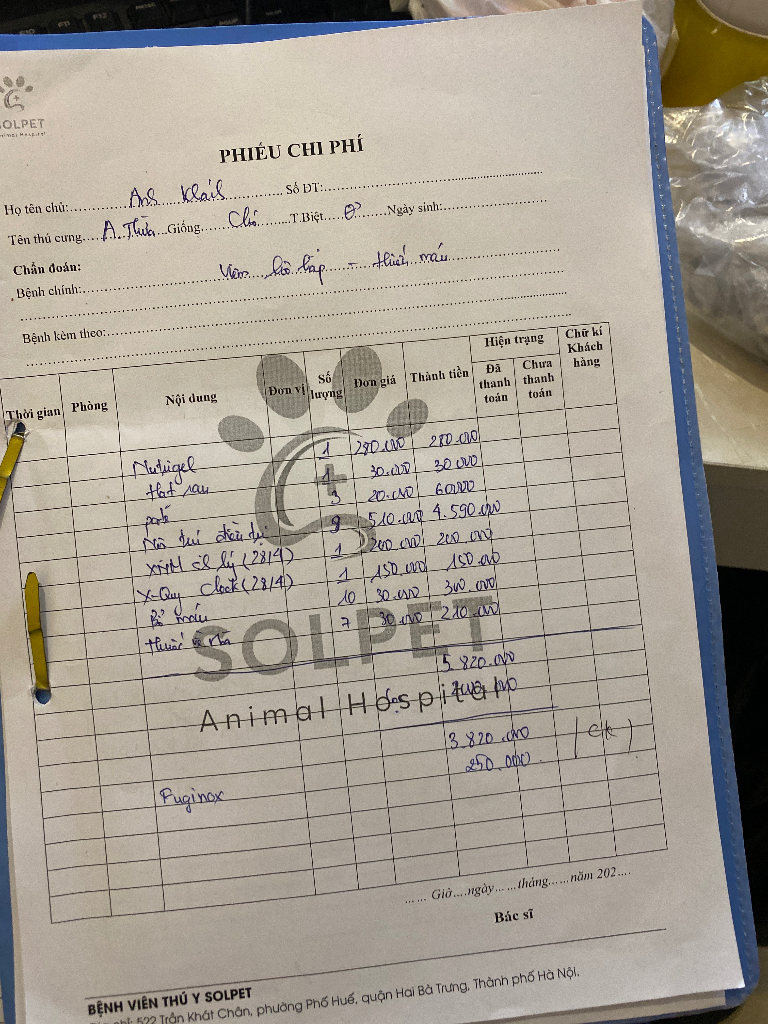 SOLPET
Animal Hospital
PHIẾU CHI PHÍ
Họ tên chủ: Anh Khải Số ĐT:
Tên thú cưng A. Thần Giống Chó T.Biệt Ngày sinh:
Chẩn đoán:
Bệnh chính: Viêm hô hấp - thiếu máu
Bệnh kèm theo:
Thời gian Phòng Nội dung Đơn vị Số lượng Đơn giá Thành tiền Hiện trạng Đã thanh toán Chưa thanh toán Chữ kí Khách hàng
Nutrigel 1 280.000 280.000
Hạt rau 1 30.000 30.000
patê 3 20.000 60.000
Nội trú điều trị 9 510.000 4.590.000
XNM sl lý (28/4) 1 200.000 200.000
X-Quy Clock (28/4) 1 150.000 150.000
Bổ máu 10 30.000 300.000
thuốc về nhà 7 30.000 210.000
5.820.000
SOLPET
Animal Hospital
3.820.000 (CK)
250.000
Fuginox
Giờ ngày tháng năm 202
Bác sĩ
BỆNH VIÊN THÚ Y SOLPET
Địa chỉ: 522 Trần Khát Chân, phường Phố Huế, quận Hai Bà Trưng, Thành phố Hà Nội.